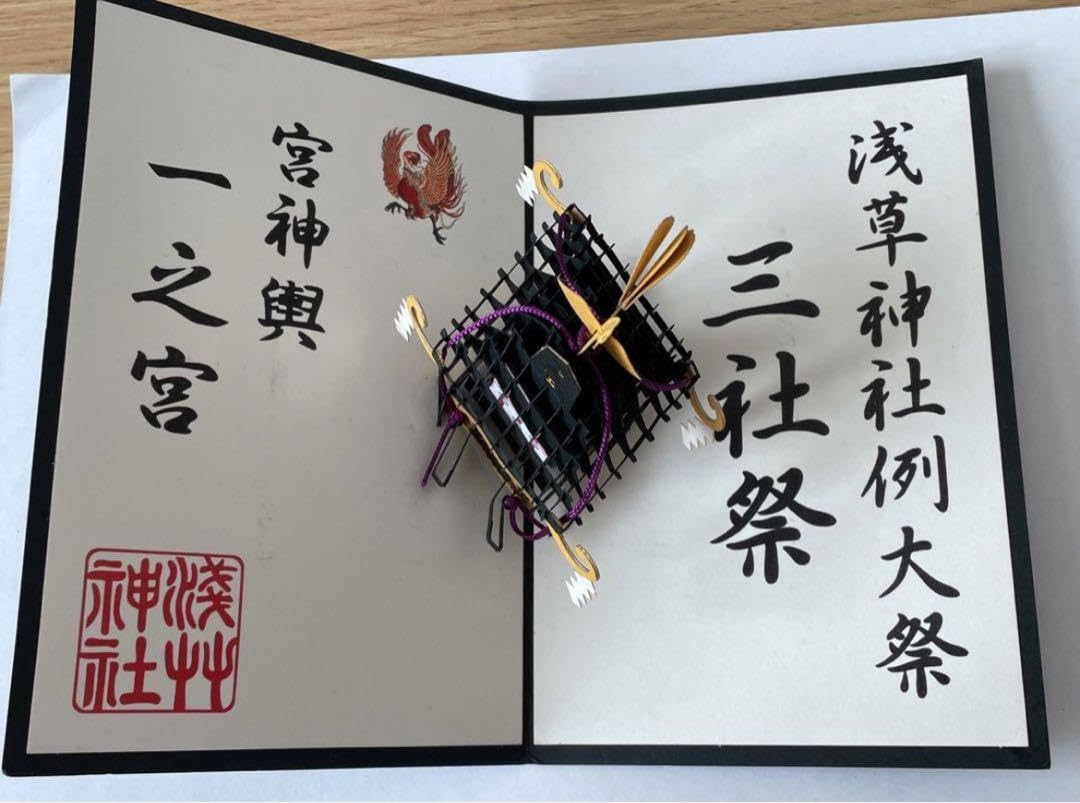 浅草神社例大祭
三社祭
宮神輿
一之宮
淺艸
神社